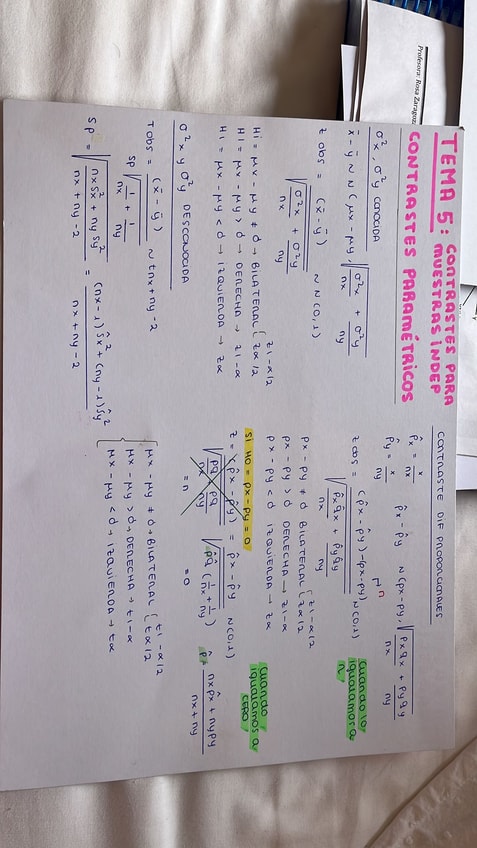 Profesora: Rosa Zaragoza
TEMA 5: CONTRASTES PARA MUESTRAS INDEP
CONTRASTES PARAMÉTRICOS
σ²x, σ²y CONOCIDA
x̄ - ȳ ~ N (μx - μy, √(σ²x/nx + σ²y/ny)
Z obs = (x̄ - ȳ) / √(σ²x/nx + σ²y/ny) ~ N(0,1)
H1 = μx - μy ≠ d → BILATERAL { z1-α/2 zα/2
H1 = μx - μy > d → DERECHA → z1-α
H1 = μx - μy < d → IZQUIERDA → zα
σ²x y σ²y DESCONOCIDA
T obs = (x̄ - ȳ) / Sp √(1/nx + 1/ny) ~ tnx+ny-2
Sp = √(nxSx² + nySy² / nx+ny-2) = (nx-1)Ŝx² + (ny-1)Ŝy² / nx+ny-2
μx - μy ≠ d → BILATERAL { t1-α/2 tα/2
μx - μy > d → DERECHA → t1-α
μx - μy < d → IZQUIERDA → tα
CONTRASTE DIF PROPORCIONALES
p̂x = x/nx
p̂y = x/ny
p̂x - p̂y ~ N(px-py, √(pxqx/nx + pyqy/ny)
Z obs = (p̂x - p̂y) - (px-py) / √(p̂xq̂x/nx + p̂yq̂y/ny) ~ N(0,1)
n
cuando lo igualamos a "n"
px - py ≠ d BILATERAL { z1-α/2 zα/2
px - py > d DERECHA → z1-α
px - py < d IZQUIERDA → zα
SI H0 = px - py = 0
Z = (p̂x - p̂y) / √(pq/nx pq/ny) = p̂x - p̂y / √(p̂q̂ (1/nx + 1/ny)) ~ N(0,1)
= n
= 0
cuando igualamos a CERO
p̂ = nxp̂x + nypy / nx + ny